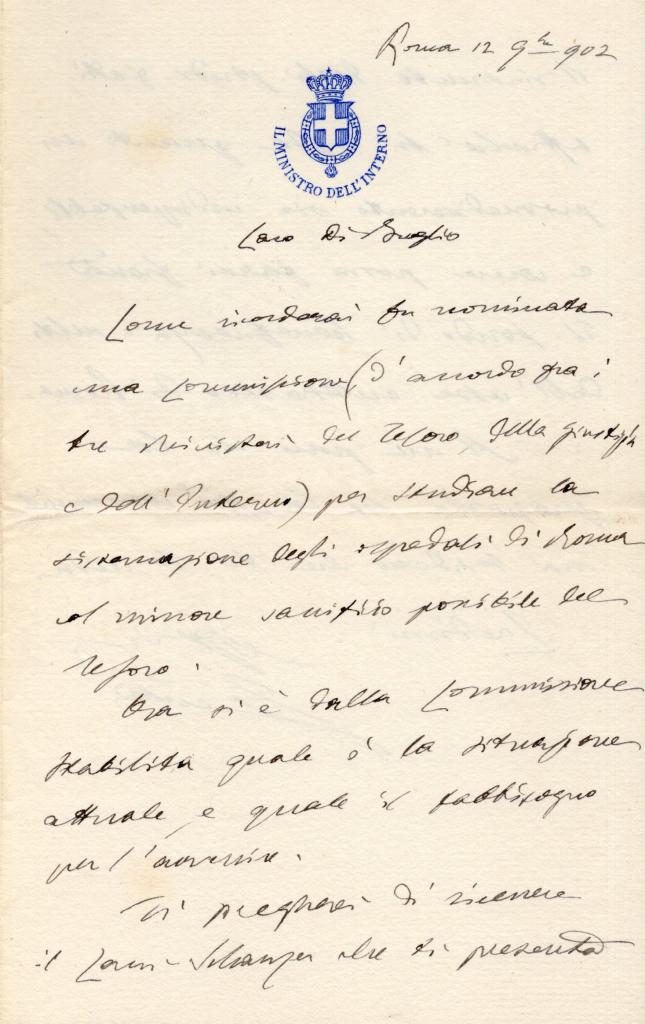 Roma 12 9bre 902
IL MINISTRO DELL'INTERNO
Caro Di Broglio
Come ricorderai fu nominata
una Commissione (d'accordo fra i
tre Ministeri del Tesoro, della Giustizia
e dell'Interno) per studiare la
sistemazione degli ospedali di Roma
col minore sacrifizio possibile del
Tesoro.
Ora si è dalla Commissione
stabilita quale è la situazione
attuale, e quale il fabbisogno
per l'avvenire.
Ti pregherei di ricevere
il Schanzer che ti presenterà